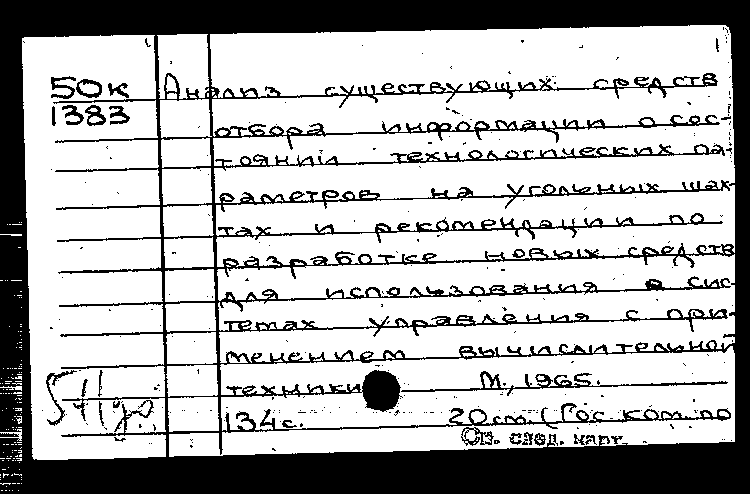 50к Анализ существующих средств
1383 отбора информации о сос-
тоянии технологических па-
раметров на угольных шах-
тах и рекомендации по
разработке новых средств
для использования в сис-
темах управления с при-
менением вычислительной
техники М., 1965.
134с. 20 см. (Гос ком. по
См. след. карт.